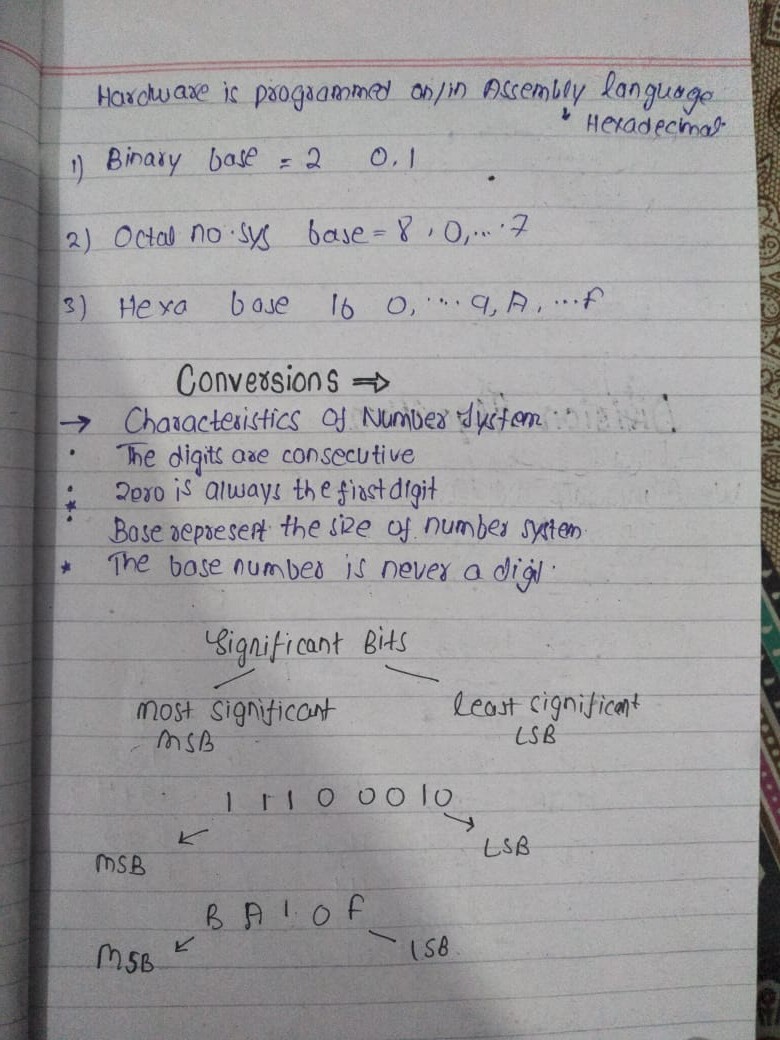 Hardware is programmed on/in Assembly language
Hexadecimal
1) Binary base = 2 0,1
2) Octal no. sys base = 8, 0,...7
3) Hexa base 16 0, ....9, A, ...F
Conversions ⇒
→ Characteristics of Number System
• The digits are consecutive
Zero is always the first digit
Base represent the size of number system.
* The base number is never a digit.
Significant Bits
most significant least significant
MSB LSB
1 1 1 0 0 0 1 0
MSB LSB
B A 1 0 F
MSB LSB